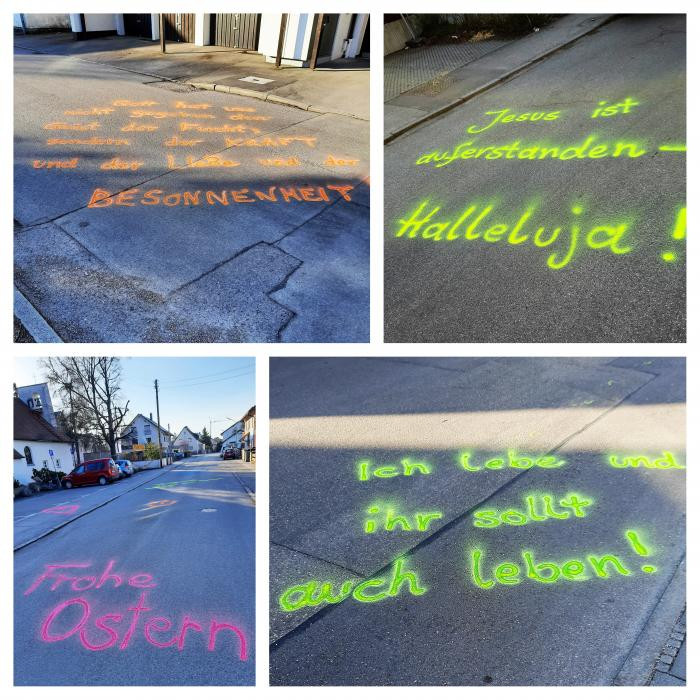 Gott hat uns
nicht gegeben den
Geist der Furcht,
sondern der KRAFT
und der Liebe und der
BESONNENHEIT
Jesus ist
auferstanden –
Halleluja!
Frohe
Ostern
Ich lebe und
ihr sollt
auch leben!